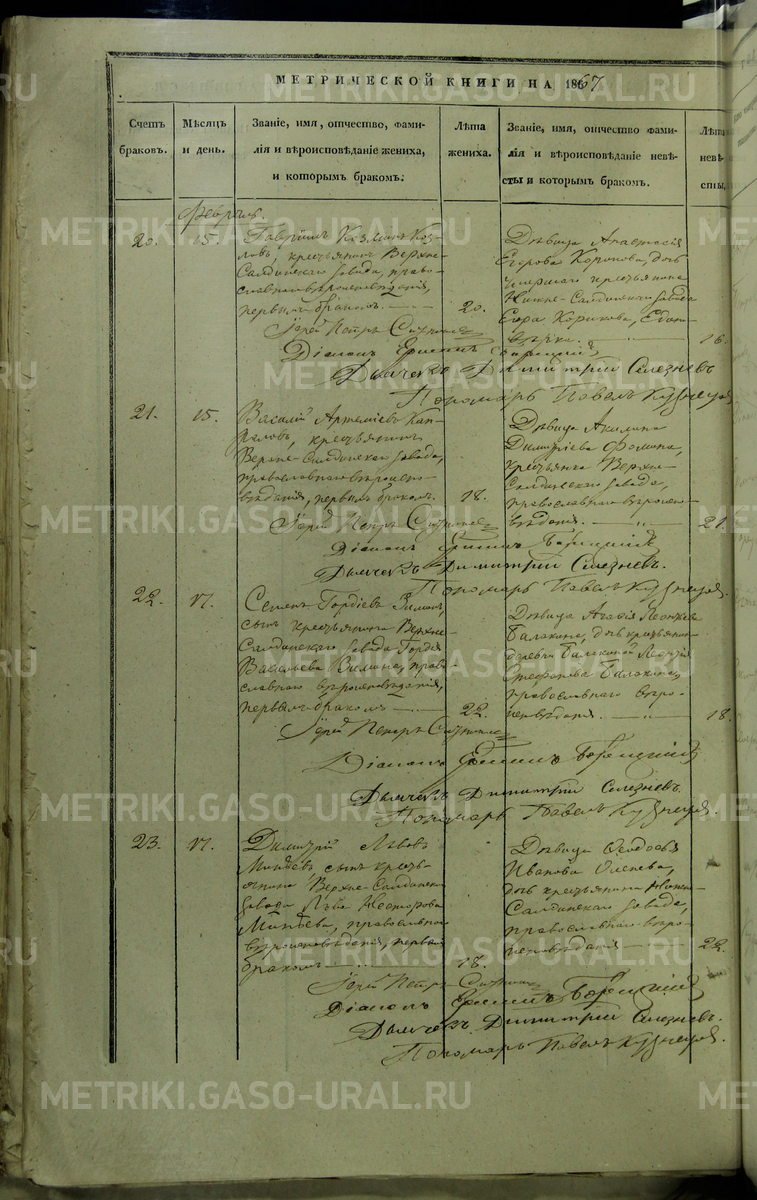 МЕТРИЧЕСКОЙ КНИГИ НА 1867
Счетъ браковъ.
Мѣсяцъ и день.
Званіе, имя, отчество, фами-
лія и вѣроисповѣданіе жениха,
и которымъ бракомъ.
Лѣта жениха.
Званіе, имя, отчество фами-
лія и вѣроисповѣданіе невѣ-
сты и которымъ бракомъ.
Лѣта
невѣ-
сты,
20.
15.
Гавріилъ Козминъ Коз-
ловъ, крестьянинъ Верхне-
Салдинскаго завода, право-
славнаго вѣроисповѣданія,
первымъ бракомъ.
20.
Дѣвица Анастасія
Егорова дочь
умершаго крестьянина
Нижне-Салдинскаго завода
Егора
16.
Іерей Петръ
Діаконъ
Дьячекъ Димитрій Селезневъ
Пономарь Павелъ Кузнецов
21.
15.
Василій Артеміевъ
крестьянинъ
Верхне-Салдинскаго завода,
православнаго вѣроиспо-
вѣданія, первымъ бракомъ.
18.
Дѣвица Акилина
Димитріева Фомина,
крестьянка Верхне-
Салдинскаго завода,
православнаго вѣроиспо-
вѣданія.
21.
Іерей Петръ
Діаконъ
Дьячекъ Димитрій Селезневъ.
Пономарь Павелъ Кузнецов
22.
17.
Семенъ Гордіевъ Зиминъ,
сынъ крестьянина Верхне-
Салдинскаго завода Гордія
Васильева Зимина, право-
славнаго вѣроисповѣданія,
первымъ бракомъ
22.
Дѣвица Агафія
Балакина, дочь крестьянина
деревни Балакиной
Стефанова Балакина,
православнаго вѣро-
исповѣданія.
18.
Іерей Петръ
Діаконъ
Дьячекъ Димитрій Селезневъ.
Пономарь Павелъ Кузнецов.
23.
17.
Димитрій Львовъ
сынъ кресть-
янина Верхне-Салдинскаго
завода Льва Несторова
православнаго
вѣроисповѣданія, первымъ
бракомъ
18.
Дѣвица Ѳеодосія
Иванова
дочь крестьянина Нижне-
Салдинскаго завода,
православнаго вѣро-
исповѣданія
22.
Іерей Петръ
Діаконъ
Дьячекъ Димитрій Селезневъ.
Пономарь Павелъ Кузнецов.
METRIKI.GASO-URAL.RU